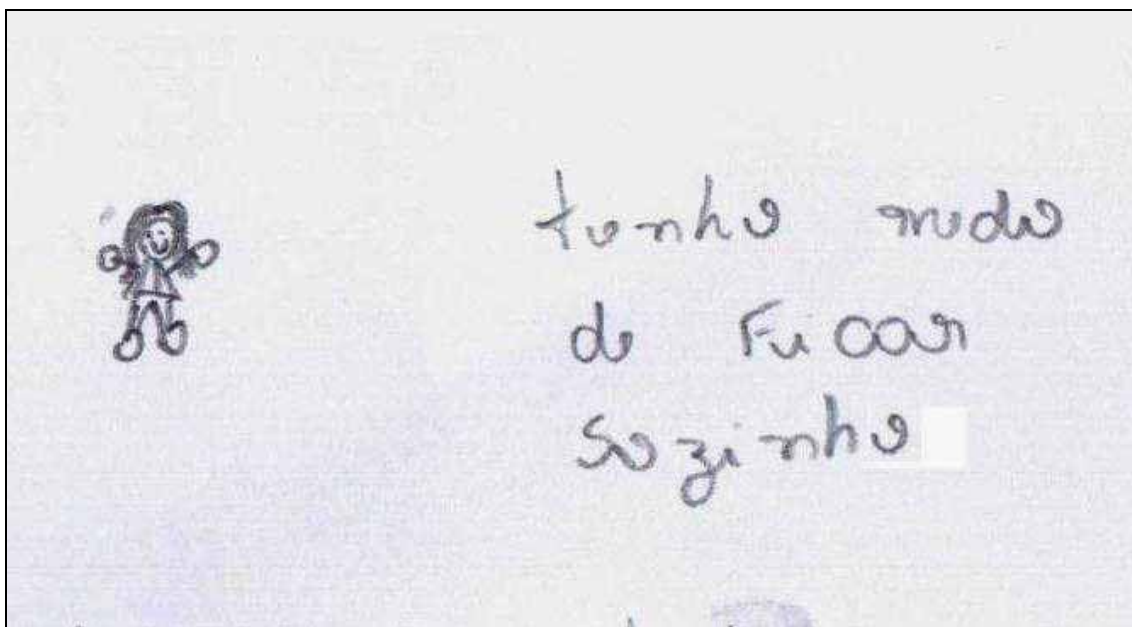 tenho medo
de Ficar
sozinho